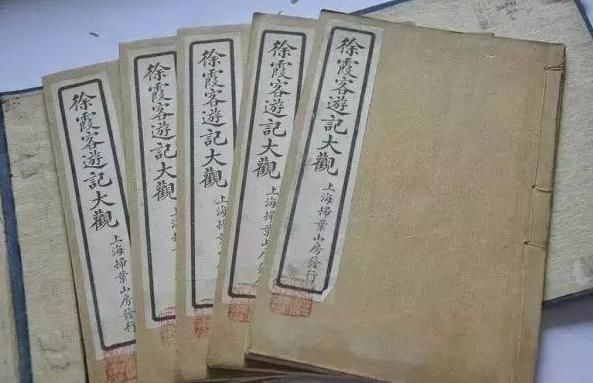 徐霞客遊記大觀
上海掃葉山房發行
徐霞客遊記大觀
上海
徐霞客遊記大觀
上海掃
徐霞客遊記大觀
上海掃葉山房
徐霞客遊記大觀
上海掃葉山房發行